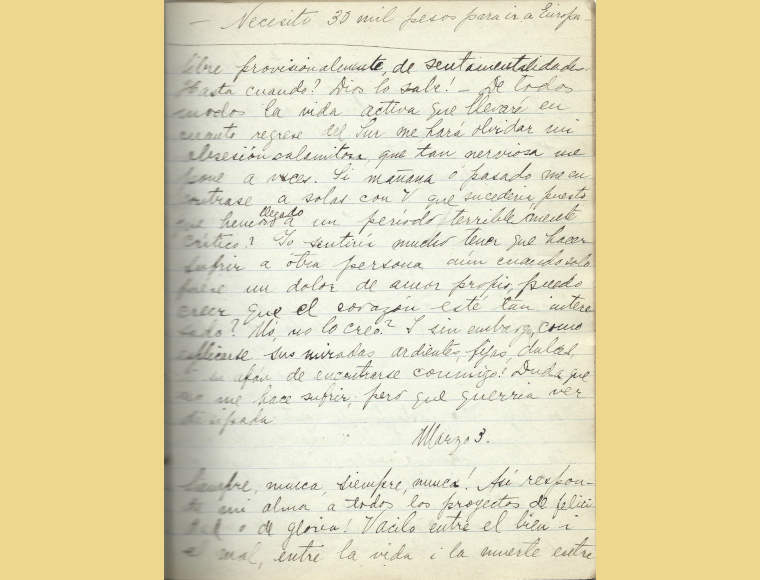 — Necesito 30 mil pesos para ir a Europa —
libre provisionalmente, de sentimentalidades.
Hasta cuando? Dios lo sabe! — De todos
modos la vida activa que llevaré en
cuanto regrese del Sur me hará olvidar mi
obsesión calamitosa, que tan nerviosa me
pone a veces. Si mañana o pasado me en
contrase a solas con V que sucedería, puesto
que hemos llegado a un período terriblemente
crítico? Yo sentiría mucho tener que hacer
sufrir a otra persona aún cuando solo
fuese un dolor de amor propio, puedo
creer que el corazón esté tan intere
sado? No, no lo creo? I sin embargo, como
esplicarse sus miradas ardientes, fijas, dulces,
i su afán de encontrarse conmigo! Duda que
no me hace sufrir, pero que querria ver
disipada.
Marzo 3.
Siempre, nunca, siempre, nunca! Asi respon-
de mi alma a todos los proyectos de felici
dad o de gloria! Vacilo entre el bien i
el mal, entre la vida i la muerte entre